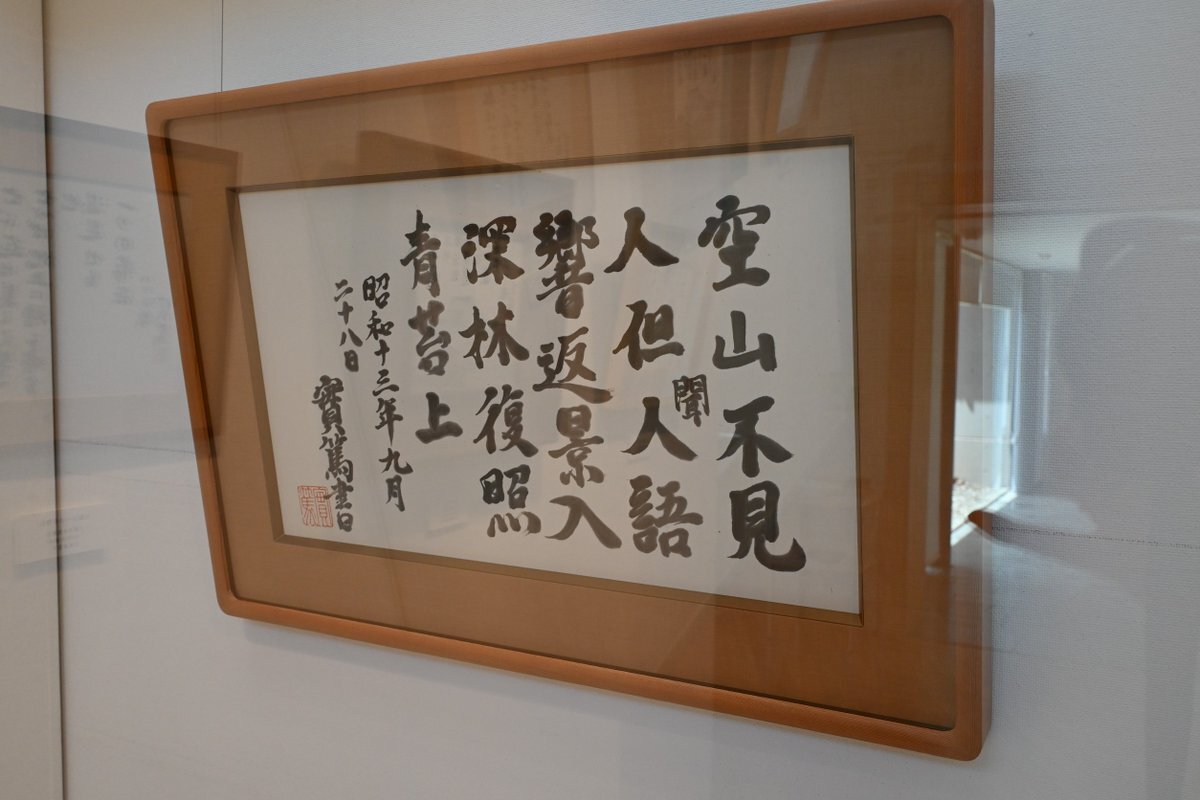 空山不見
人但聞人語
響返景入
深林復照
青苔上
昭和十三年九月
二十八日
實篤書
實篤